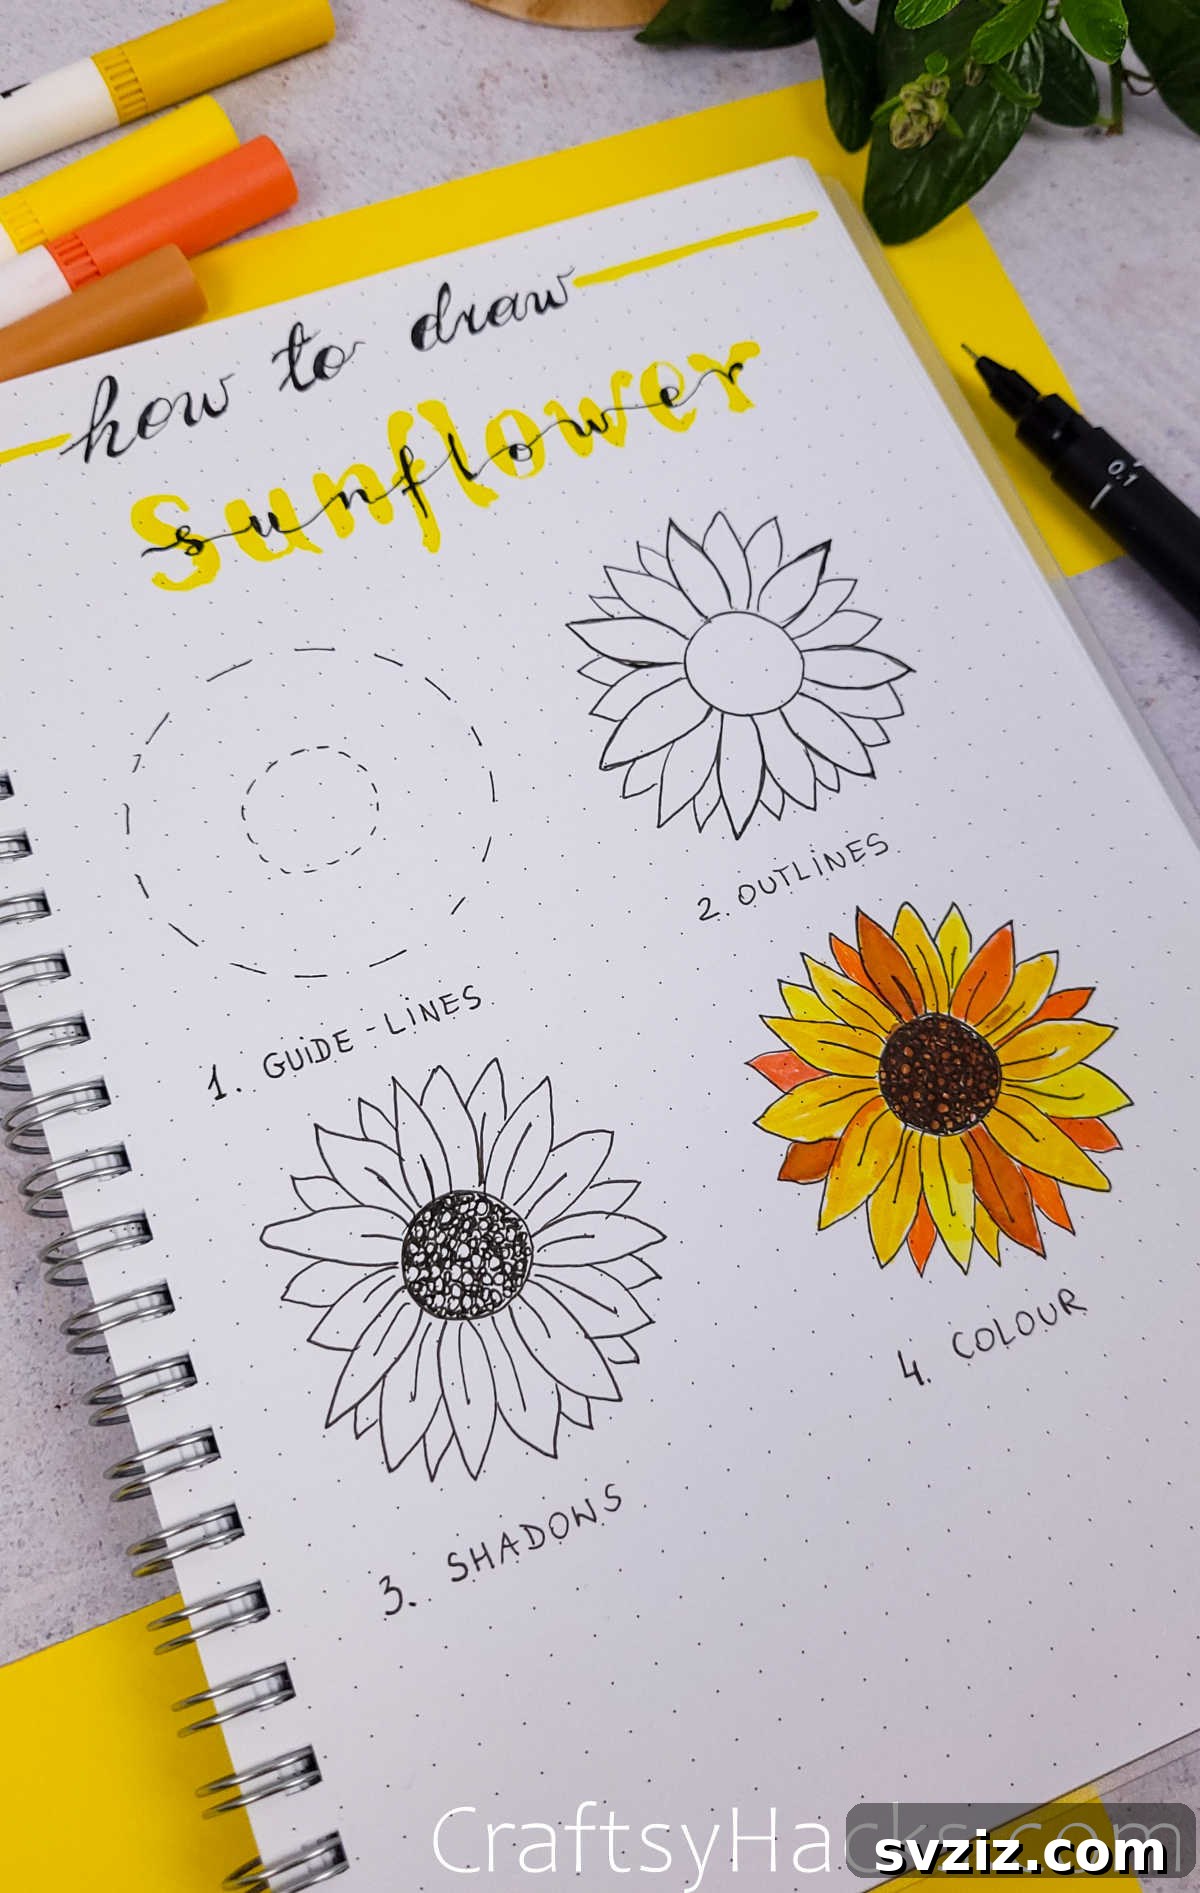 how to draw
Sunflower
sunflower
0.1
1. GUIDE-LINES
2. OUTLINES
3. SHADOWS
4. COLOUR
CraftsyHacks.com
svziz.com